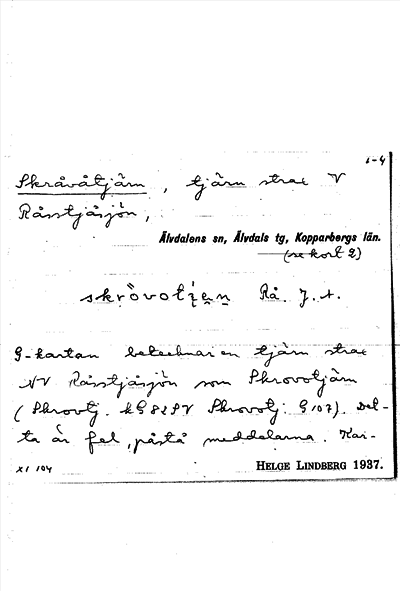 1-4
Skråvåtjärn, tjärn strax V
Råsstjåsjön,
Älvdalens sn, Älvdals tg, Kopparbergs län.
(se kort 2)
Rå. J. A.
G-kartan betecknar en tjärn strax
NV Råsstjåsjön som Skrovotjärn
(Skrovtj. kG 82SV Skrovotj. G 107). Det-
ta är fel, påstå meddelarna. Kar-
XI 104
HELGE LINDBERG 1937.